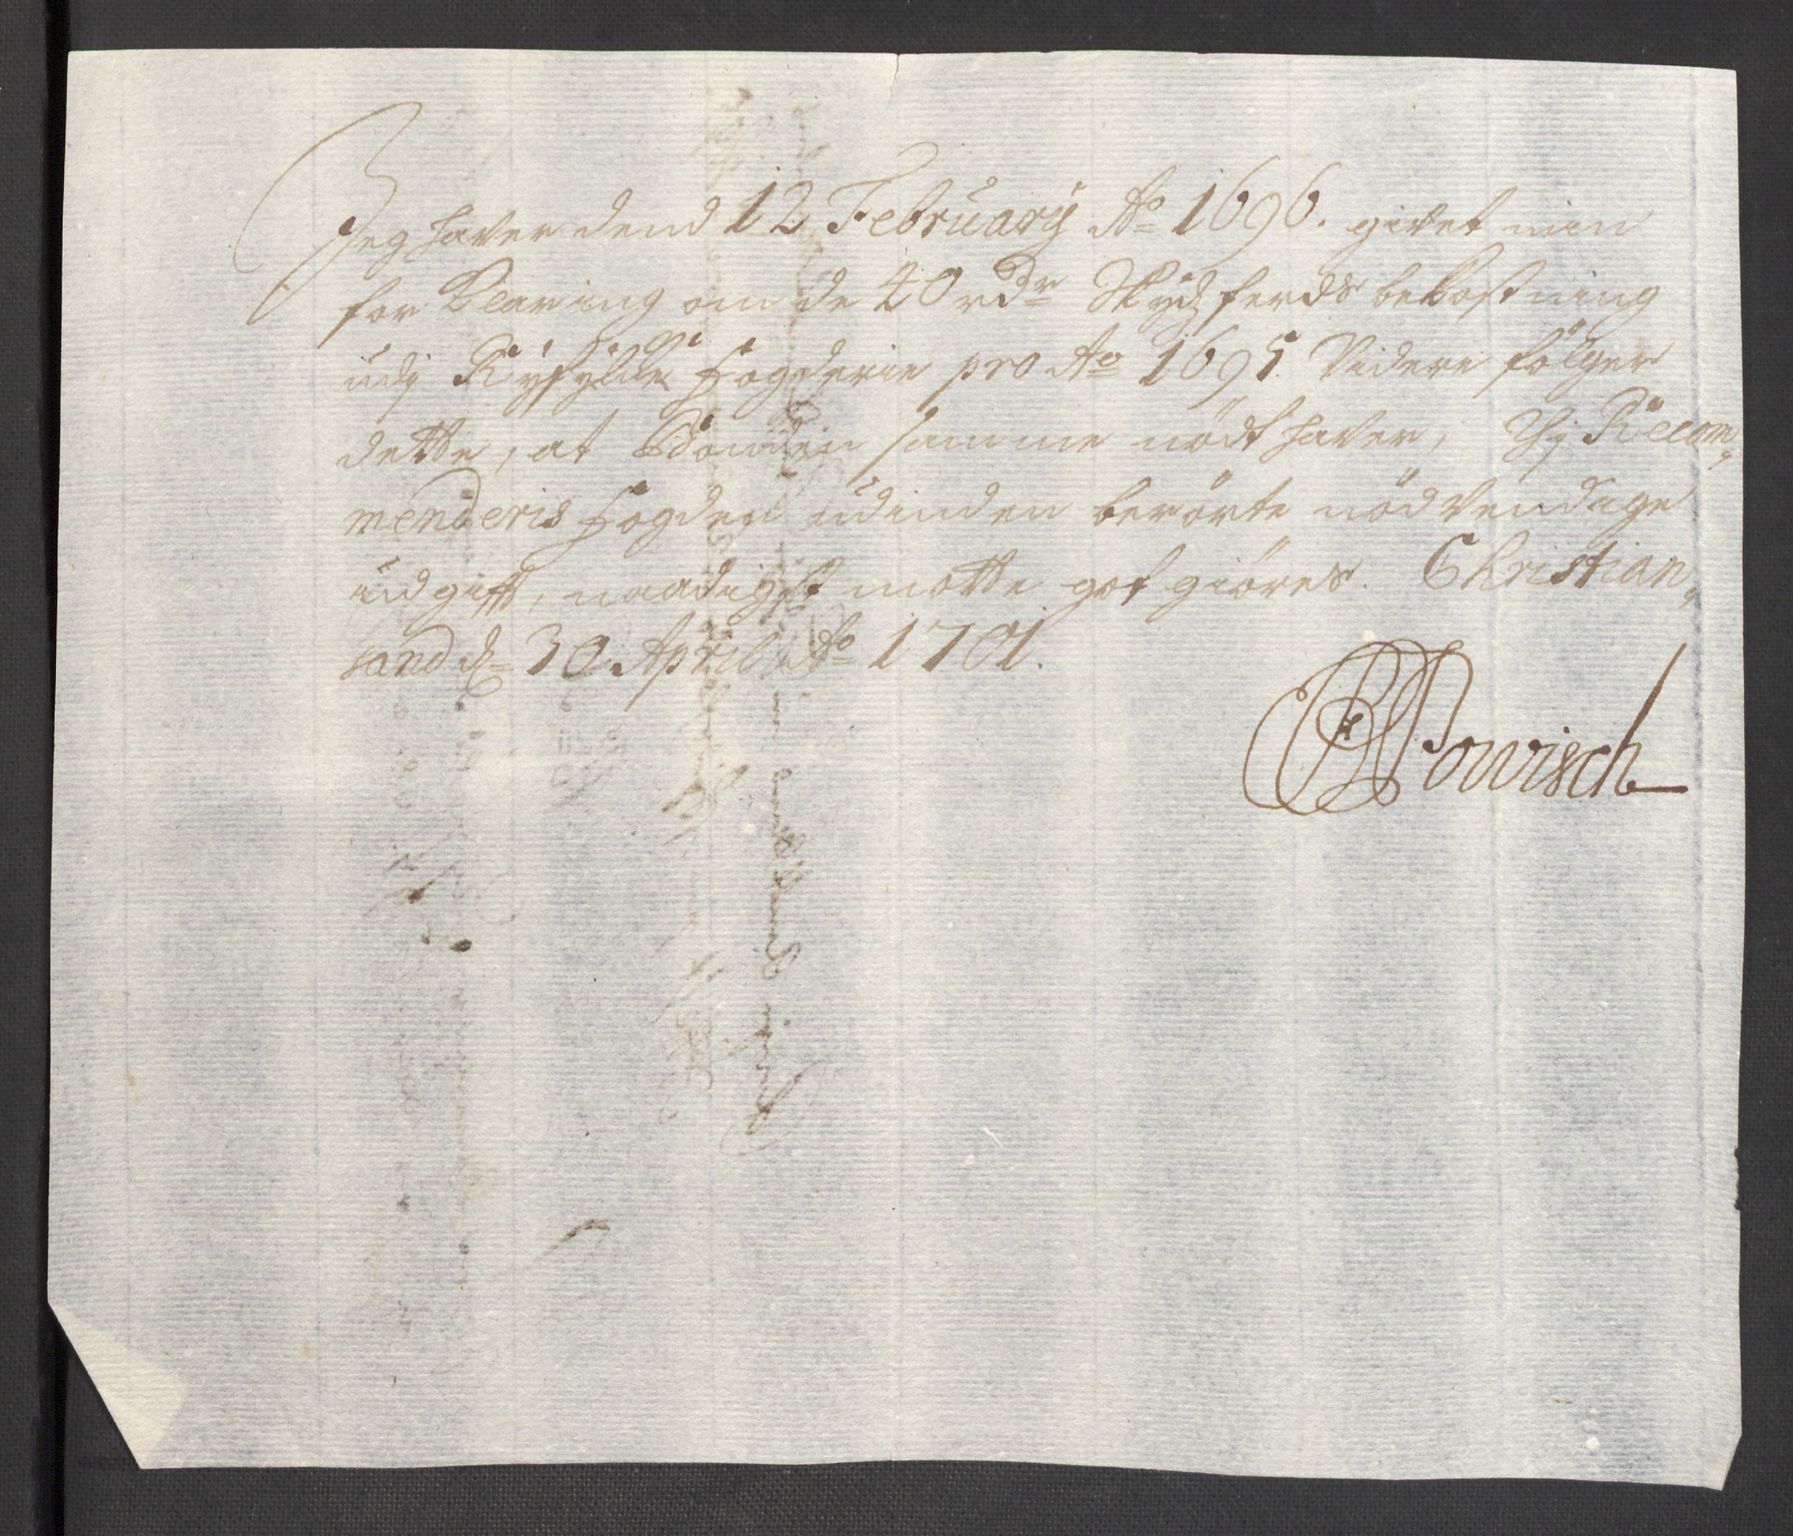 Jeg haver dend 12 February Ao 1696. givet min
for Klaring om de 40 rdr Skydtz ferds bekostning
udj Ryfylke Fogderie pro Ao 1695. Videre følger
dette, at samme nødt haver, Thj Recom,
menderis Fogden udinden berørte nødvendige
udgifft, naadigst motte got giøres. Christian,
sand d. 30 April Ao 1701.
Powisch